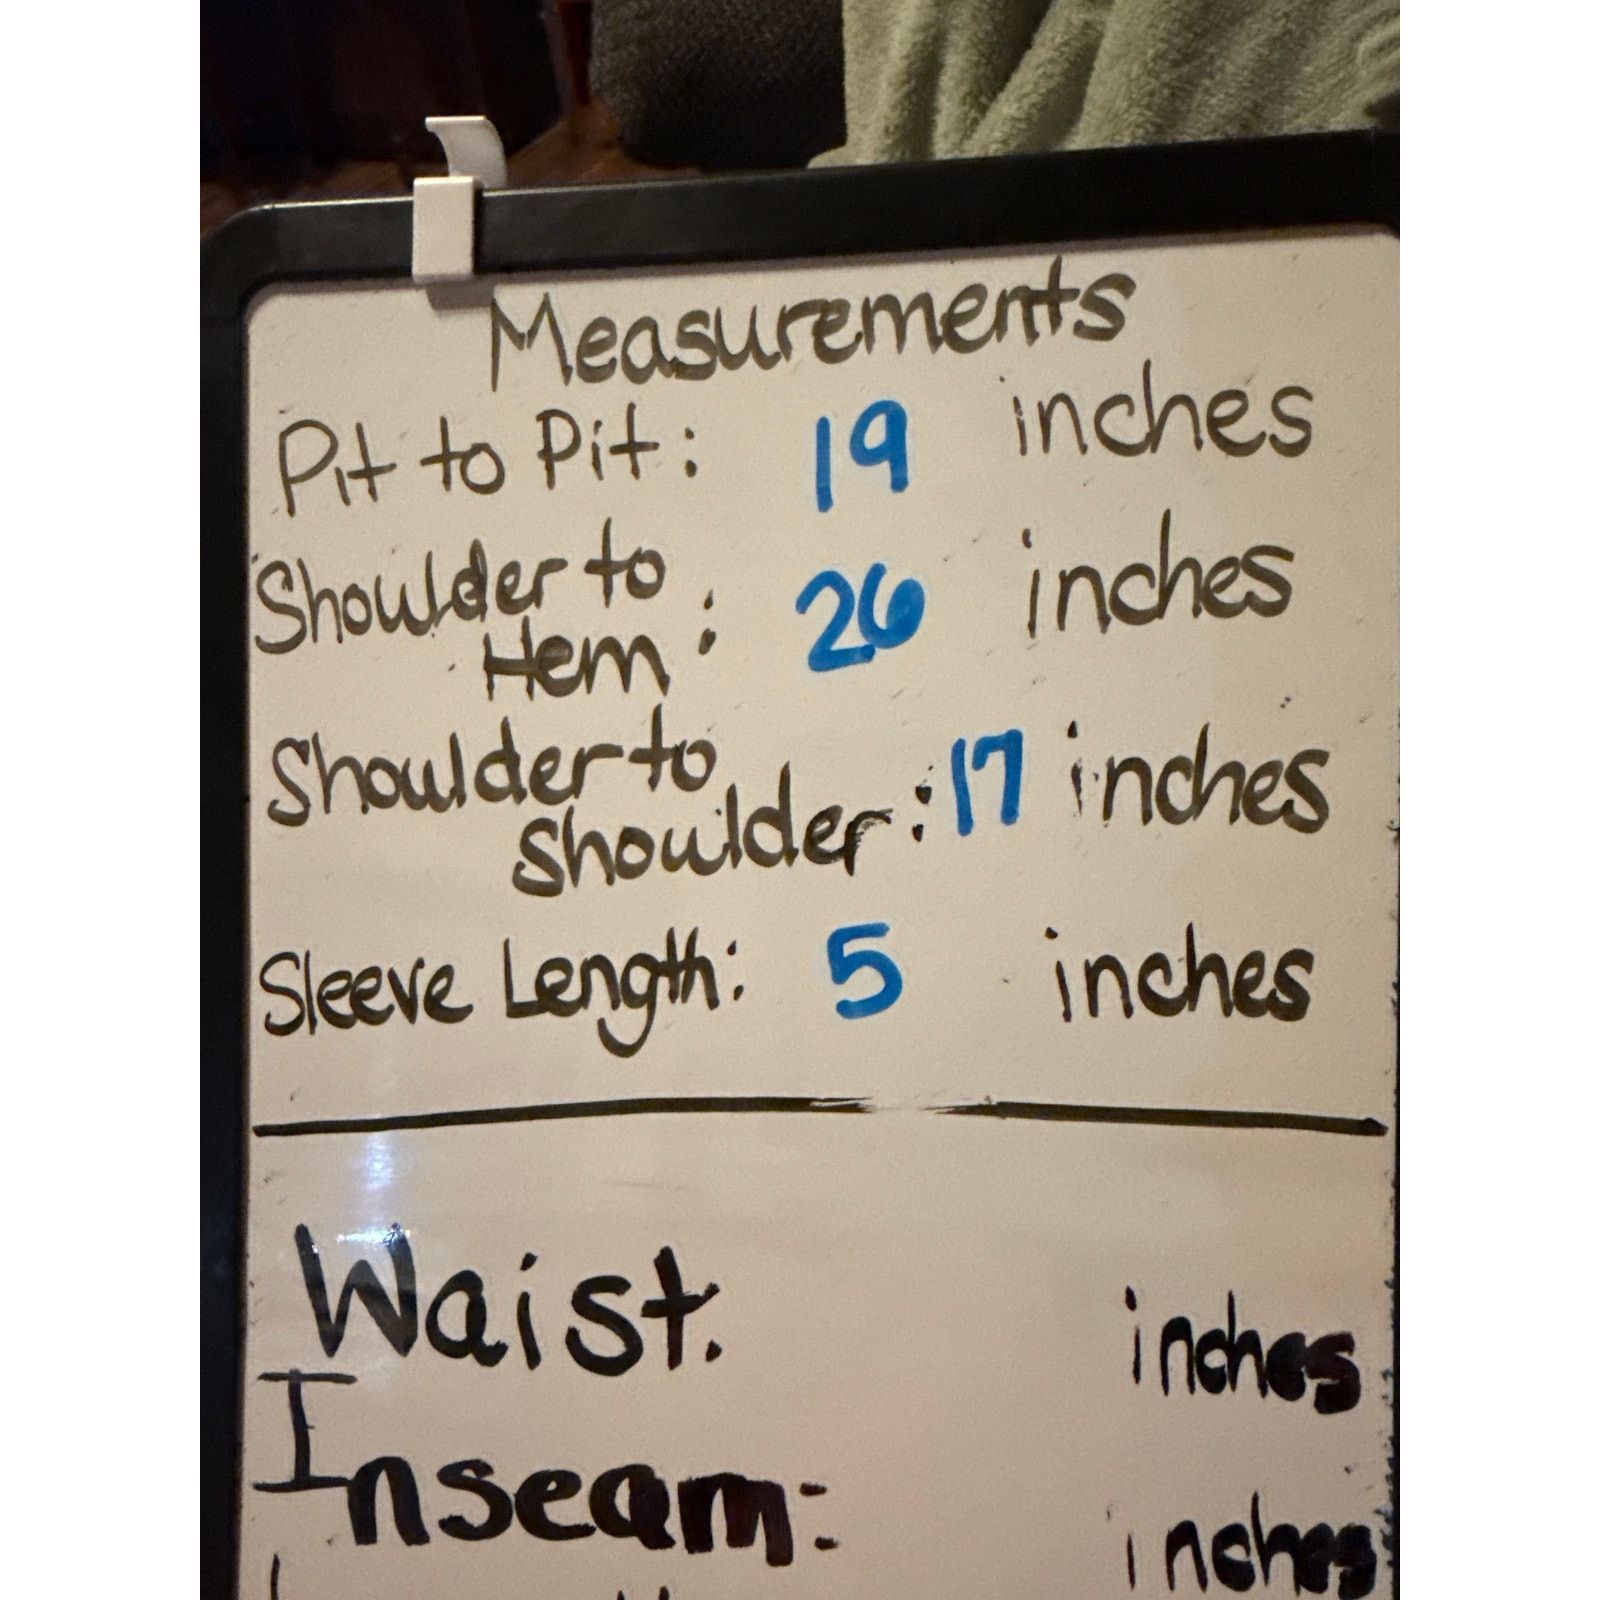 Measurements
Pit to Pit: 19 inches
Shoulder to
Hem: 26 inches
Shoulder to
Shoulder: 17 inches
Sleeve Length: 5 inches
Waist: inches
Inseam: inches